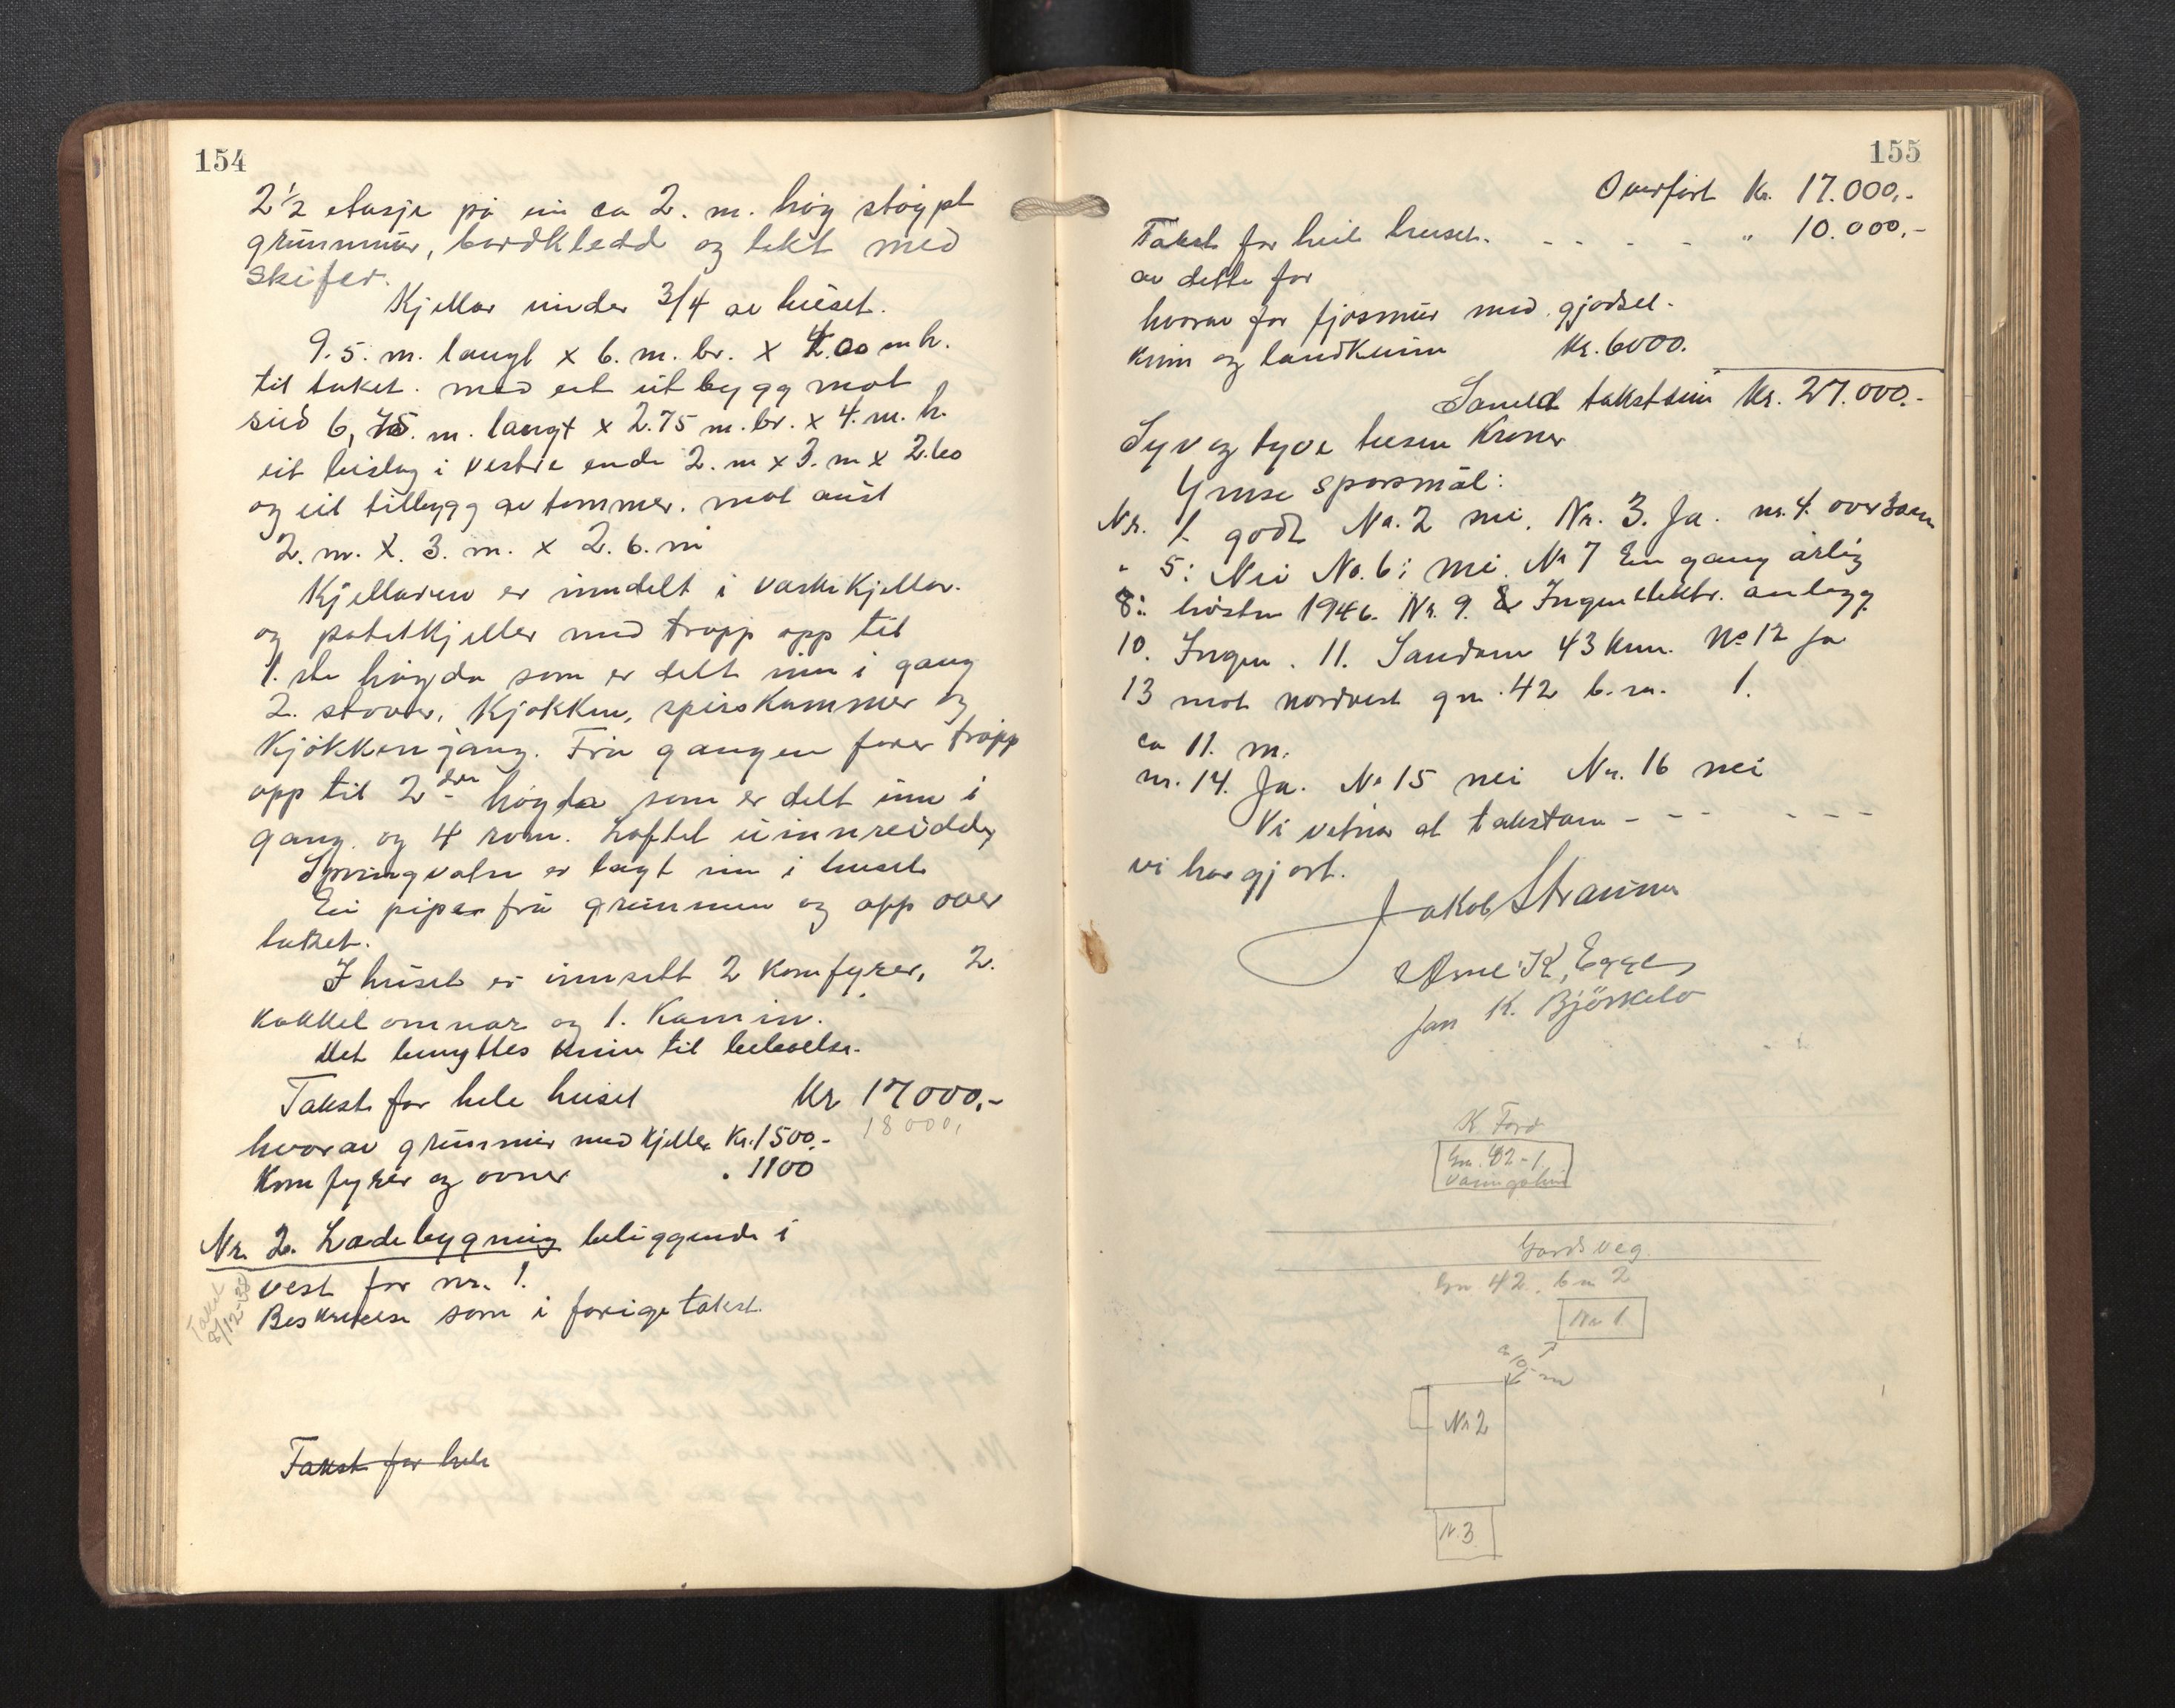 154
2 1/2 etasje på ein ca 2. m. høg støypt
grunnmur, bordkledd og tekt med
skifer.
Kjellar under 3/4 av huset.
9.5. m. langt x 6. m. br. x 4.00 m h.
til taket. med eit utbygg mot
sud 6,75. m. langt x 2.75 m. br. x 4. m. h.
eit bislag i vestre ende 2. m x 3. m x 2.60
og eit tilbygg av tømmer. mot aust
2. m. x. 3. m. x 2. 6. m
Kjellaren er inndelt i vaskekjellar.
og potetkjeller med trapp opp til
1. ste høgda som er delt inn i gang
2. stover, Kjøkken, spiskammer og
Kjøkkengang. Frå gangen fører trapp
opp til 2 dre høgda som er delt inn i
gang. og 4 rom. Loftet uinnreidd
Springvatn er lagt inn i huset
Ei pipe frå grunnen og opp over
taket.
I huset er innsett 2 Komfyrer, 2.
kakkelomnar og 1. Kamin.
Det benyttes til
Takst for hele huset Kr 17000,-
18000,
hvorav grunnmur med kjeller Kr. 1500,-
Komfyrer og ovner . 1100
Nr. 2. Ladebygning beliggende i
vest for nr. 1.
Takst 8/12-38
Beskrivelse som i forige takst.
Takst for hele
155
Overført Kr. 17.000,-
Takst for heile huset. - - - - " 10.000,-
av dette for
hvorav for fjøsmur med gjødsel-
kum og landkum Kr. 6000.
Samla takstsum Kr. 27.000.-
Syv og tyve tusen Kroner
Ymse spørsmål:
Nr. 1. godt Nr. 2 nei. Nr. 3. Ja. nr. 4.
" 5: Nei No. 6: nei. Nr 7 Ein gang årlig
8: hösten 1946. Nr. 9. Ingen elektr. anlegg
10. Ingen. 11. Sandane 43 km. No 12 Ja
13 mot nordvest gn. 42 b. nr. 1.
ca 11. m.
nr. 14. Ja. Nr 15 nei Nr. 16 nei
Vi vitnar at takstane - - - - - -
vi har gjort.
Jakob Straume
Arne K. Egge
Jan K. Björkelo
K. Ford
Gn. 42-1
Vaaningshus
Gards veg.
Gn 42. bn 2
Nr 1.
ca 10 m
Nr 2
N. 3